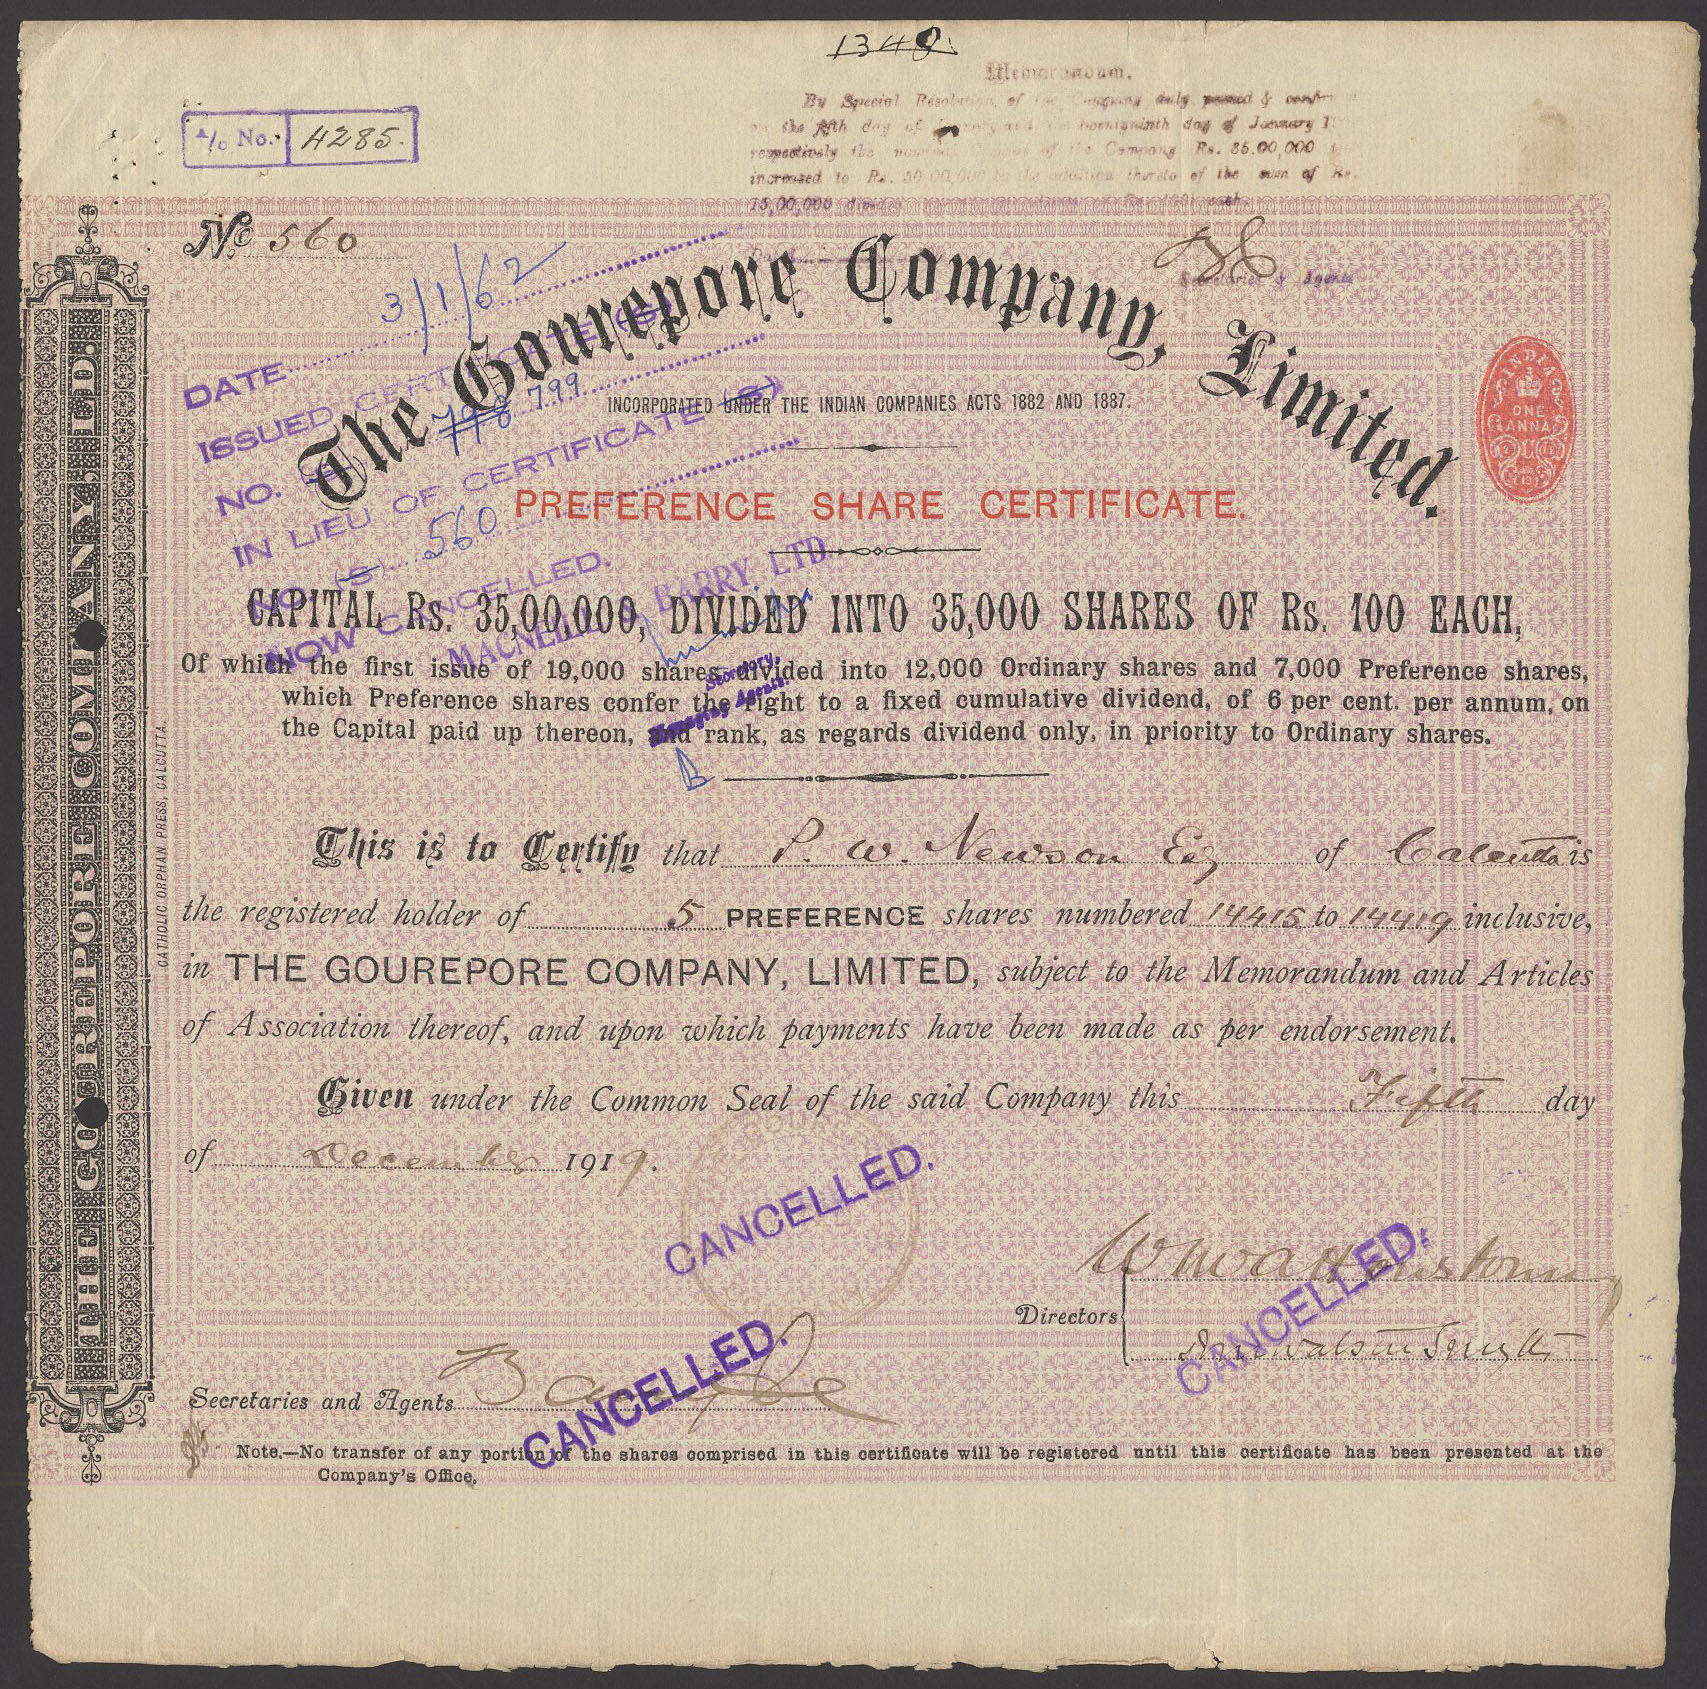 1348.
Memorandum.
By Special Resolution of the Company duly passed &
on the day of and day of January
respectively the of the Company Rs. 35,00,000
increased to Rs. 50,00,000 by the addition thereto of the sum of Rs.
15,00,000 each.
A/c No. 4285.
No. 560
Secretaries & Agents
DATE 3/1/62
ISSUED CERTIFICATE (S)
NO. 798 799
IN LIEU OF CERTIFICATE (S)
NO. (S) 560
NOW CANCELLED.
MACNEILL & BARRY, LTD.
Secretary.
Managing Agents.
The Gourepore Company, Limited.
INCORPORATED UNDER THE INDIAN COMPANIES ACTS 1882 AND 1887.
INDIA
ONE
ANNA
PREFERENCE SHARE CERTIFICATE.
CAPITAL Rs. 35,00,000, DIVIDED INTO 35,000 SHARES OF Rs. 100 EACH,
Of which the first issue of 19,000 shares, divided into 12,000 Ordinary shares and 7,000 Preference shares,
which Preference shares confer the right to a fixed cumulative dividend, of 6 per cent. per annum, on
the Capital paid up thereon, and rank, as regards dividend only, in priority to Ordinary shares.
This is to Certify that P. W. Newson Esq of Calcutta is
the registered holder of 5 PREFERENCE shares numbered 14415 to 14419 inclusive,
in THE GOUREPORE COMPANY, LIMITED, subject to the Memorandum and Articles
of Association thereof, and upon which payments have been made as per endorsement.
Given under the Common Seal of the said Company this Fifth day
of December 1919.
CANCELLED.
CANCELLED.
Directors
CANCELLED.
Secretaries and Agents
Note.—No transfer of any portion of the shares comprised in this certificate will be registered until this certificate has been presented at the
Company's Office.
THE GOUREPORE COMPANY, LD.
CATHOLIC ORPHAN PRESS, CALCUTTA.